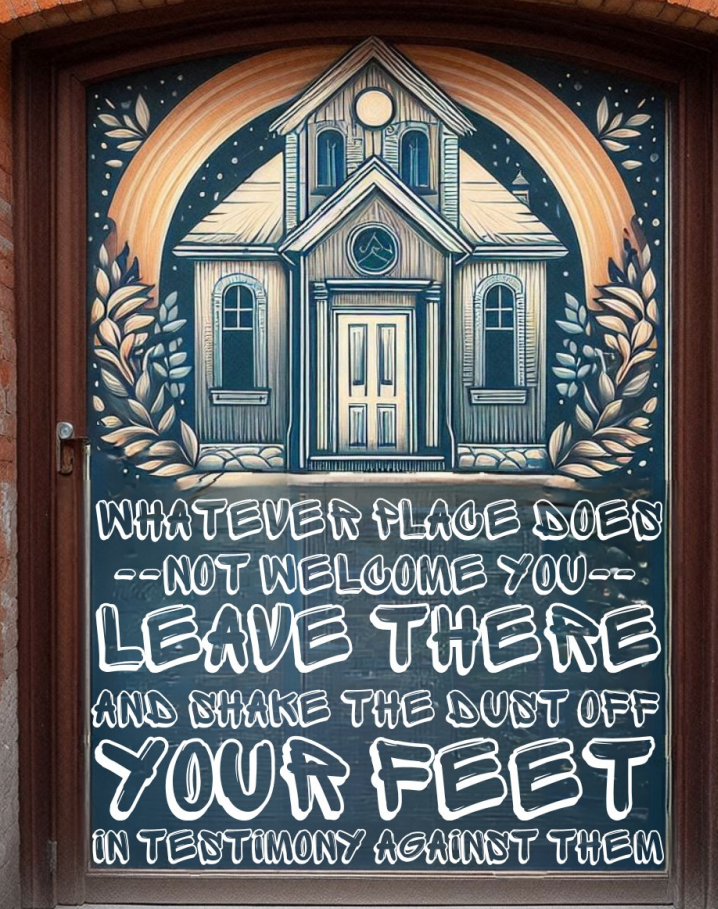 WHATEVER PLACE DOES
--NOT WELCOME YOU--
LEAVE THERE
AND SHAKE THE DUST OFF
YOUR FEET
IN TESTIMONY AGAINST THEM